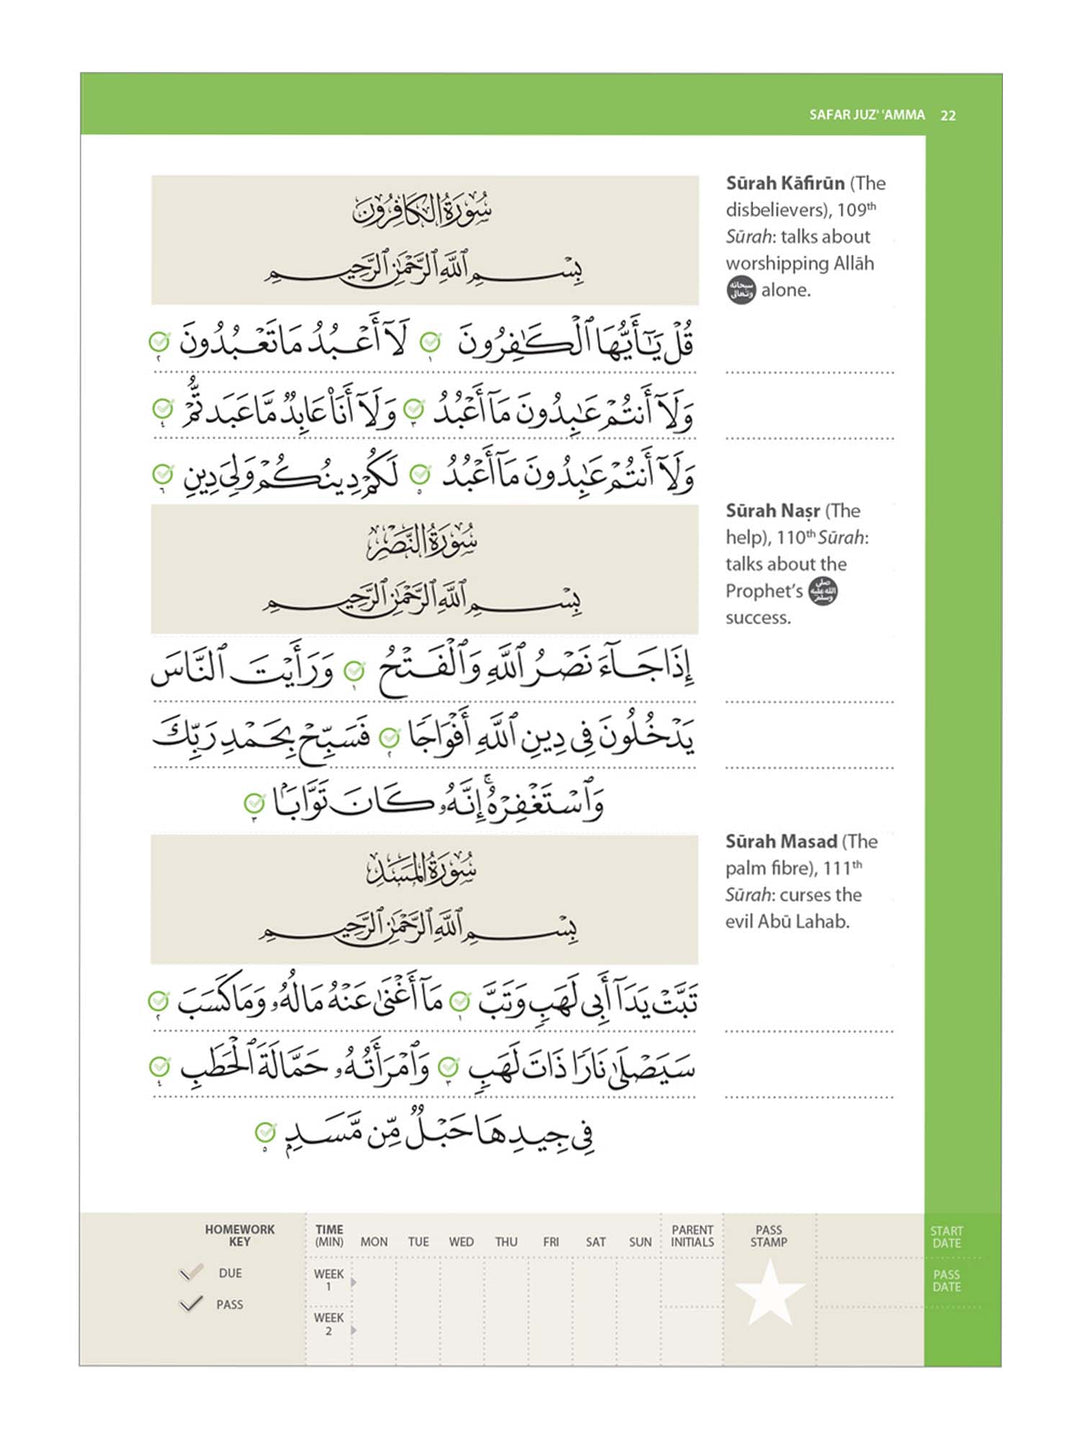 SAFAR JUZ' 'AMMA 22
سُورَةُ الكَافِرُونَ
بِسْمِ ٱللَّهِ ٱلرَّحْمَٰنِ ٱلرَّحِيمِ
قُلْ يَٰٓأَيُّهَا ٱلْكَٰفِرُونَ ١ لَآ أَعْبُدُ مَا تَعْبُدُونَ ٢
وَلَآ أَنتُمْ عَٰبِدُونَ مَآ أَعْبُدُ ٣ وَلَآ أَنَا۠ عَابِدٌ مَّا عَبَدتُّمْ ٤
وَلَآ أَنتُمْ عَٰبِدُونَ مَآ أَعْبُدُ ٥ لَكُمْ دِينُكُمْ وَلِىَ دِينِ ٦
Sūrah Kāfirūn (The
disbelievers), 109th
Sūrah: talks about
worshipping Allāh
سبحانه وتعالى alone.
سُورَةُ النَّصْرِ
بِسْمِ ٱللَّهِ ٱلرَّحْمَٰنِ ٱلرَّحِيمِ
إِذَا جَآءَ نَصْرُ ٱللَّهِ وَٱلْفَتْحُ ١ وَرَأَيْتَ ٱلنَّاسَ
يَدْخُلُونَ فِى دِينِ ٱللَّهِ أَفْوَاجًا ٢ فَسَبِّحْ بِحَمْدِ رَبِّكَ
وَٱسْتَغْفِرْهُ ۚ إِنَّهُۥ كَانَ تَوَّابًۢا ٣
Sūrah Naṣr (The
help), 110th Sūrah:
talks about the
Prophet's صلى الله عليه وسلم
success.
سُورَةُ المَسَدِ
بِسْمِ ٱللَّهِ ٱلرَّحْمَٰنِ ٱلرَّحِيمِ
تَبَّتْ يَدَآ أَبِى لَهَبٍ وَتَبَّ ١ مَآ أَغْنَىٰ عَنْهُ مَالُهُۥ وَمَا كَسَبَ ٢
سَيَصْلَىٰ نَارًا ذَاتَ لَهَبٍ ٣ وَٱمْرَأَتُهُۥ حَمَّالَةَ ٱلْحَطَبِ ٤
فِى جِيدِهَا حَبْلٌ مِّن مَّسَدٍۭ ٥
Sūrah Masad (The
palm fibre), 111th
Sūrah: curses the
evil Abū Lahab.
HOMEWORK
KEY
DUE
PASS
TIME
(MIN) MON TUE WED THU FRI SAT SUN
WEEK
1
WEEK
2
PARENT
INITIALS
PASS
STAMP
START
DATE
PASS
DATE